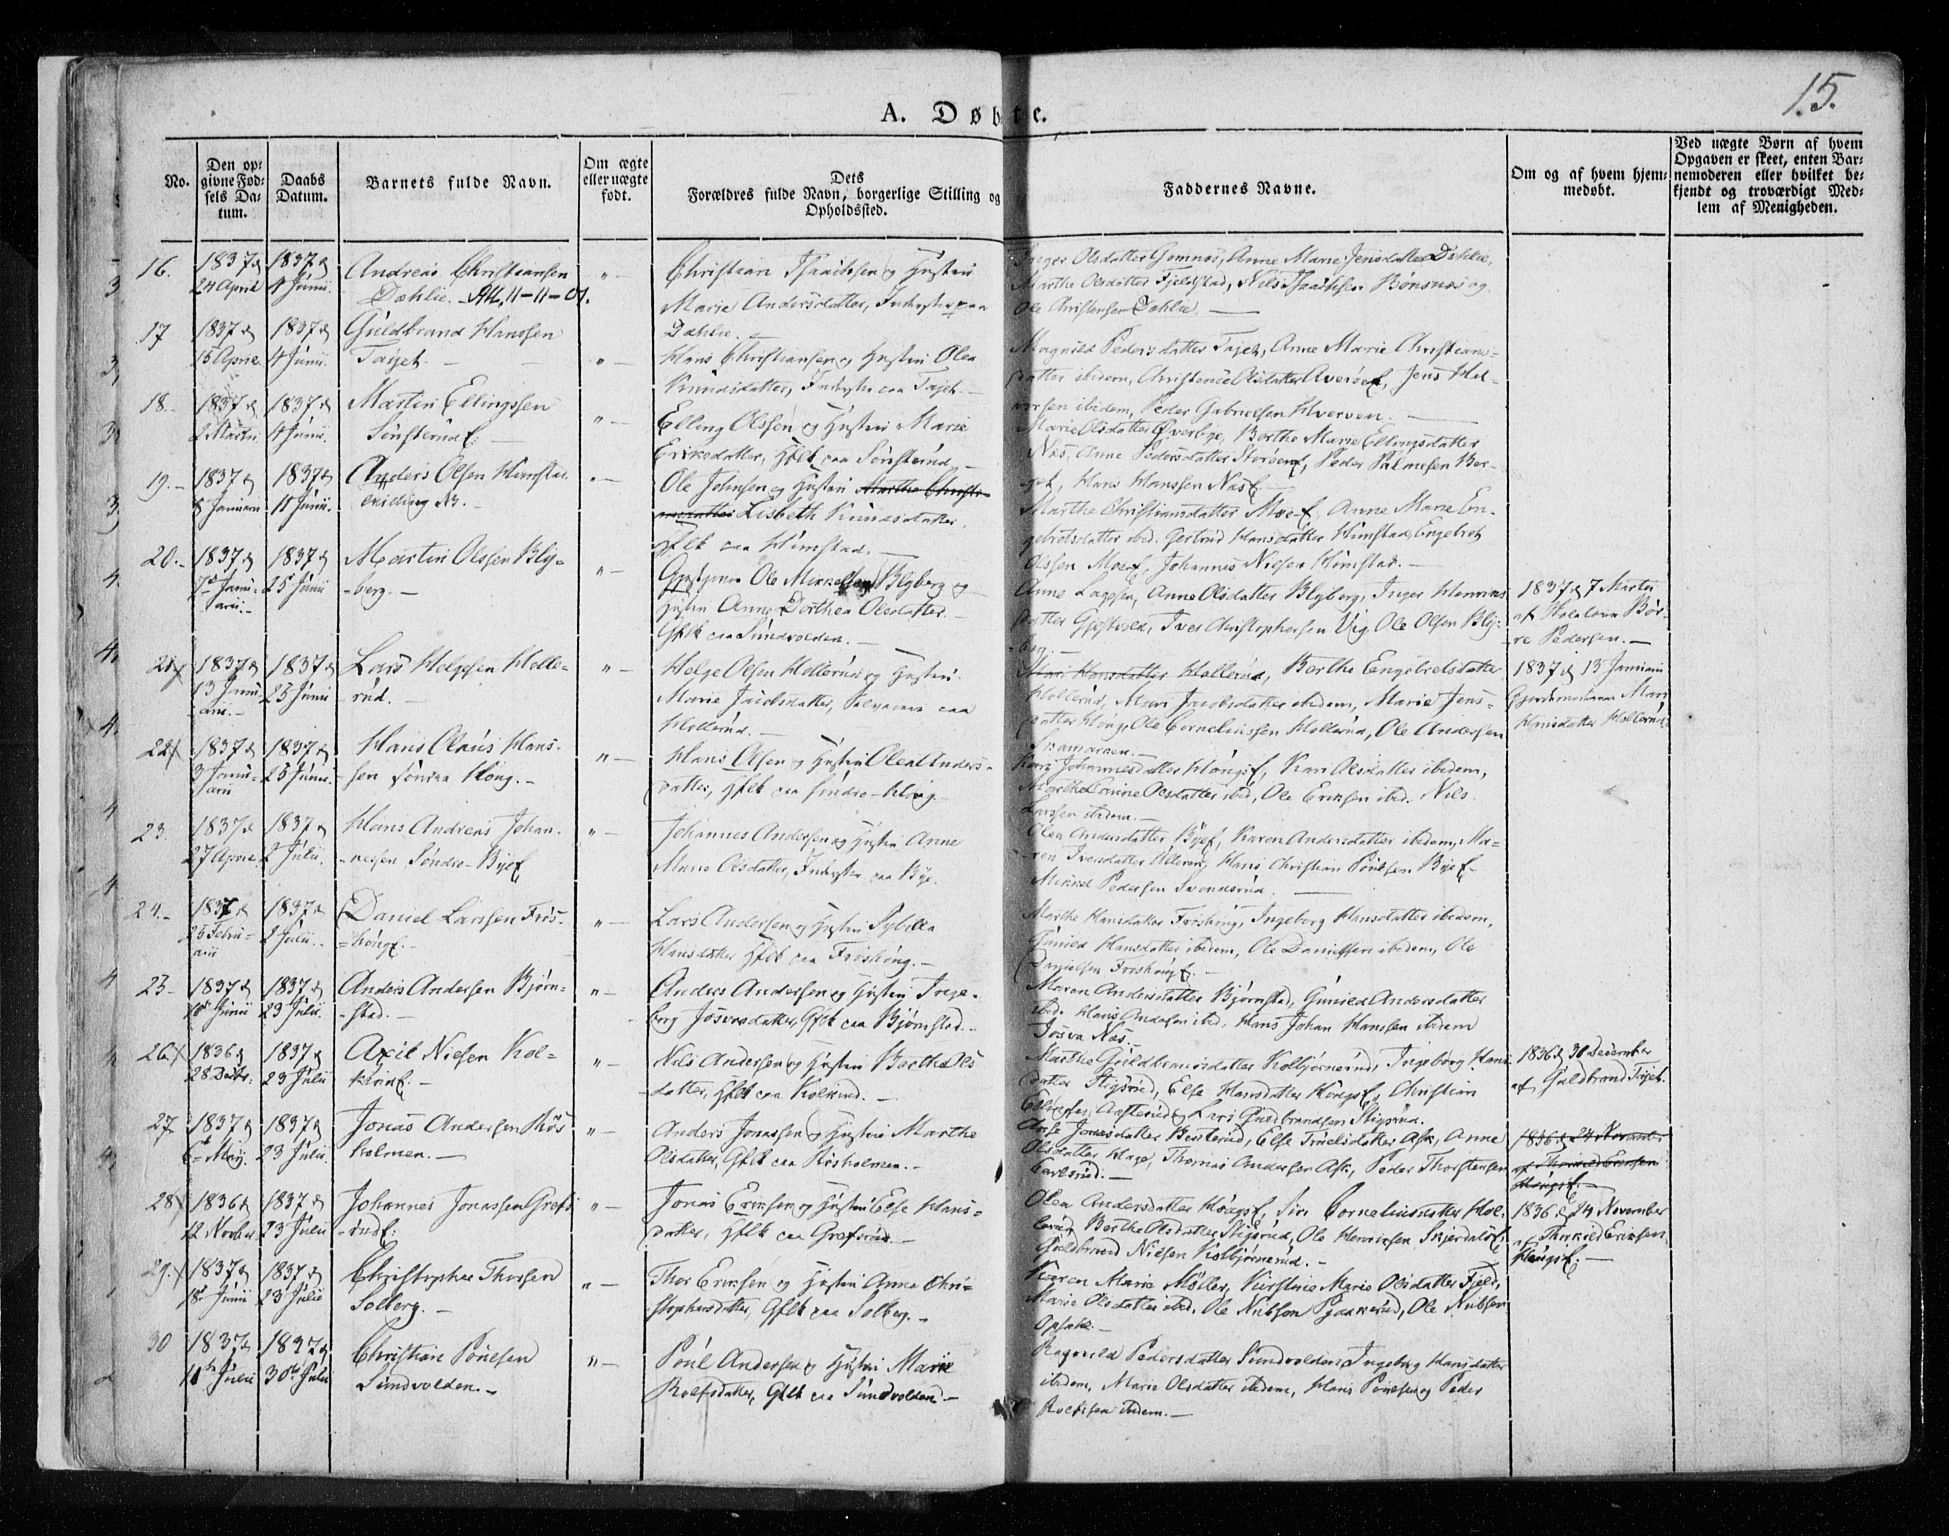 15.
A. Døbte.
No.
Den op-
givne Fød-
sels Da-
tum.
Daabs
Datum.
Barnets fulde Navn.
Om ægte
eller uægte
født.
Dets
Forældres fulde Navn, borgerlige Stilling og
Opholdssted.
Faddernes Navne.
Om og af hvem hjem-
medøbt.
Ved uægte Børn af hvem
Opgaven er skeet, enten Bar-
nemoderen eller hvilket be-
kjendt og troværdigt Med-
lem af Menigheden.
16.
1837 d
24 April
1837 d
4 Junii
Andreas Christiansen
Dæhlie. 11-11-01.
"-
Christian Isaachsen og Hustru
Marie Andersdatter, Inderster paa
Dæhlie.
Inger Olsdatter Gomnæs, Anne Marie Jensdatter Dæhlie,
Marthe Olsdatter Fjeldstad, Nils Isaachsen Bønsnæs og
Ole Christensen Dæhlie.
17
1837 d
15 April
1837 d
4 Junii.
Guldbrand Hanssen
Tajet.
"-
Hans Christiansen og Hustru Olea
Knudsdatter, Inderster paa Tajet.
Magnild Pedersdatter Tajet, Anne Marie Christians-
datter ibidem, Christence Olsdatter Averøe, Jens Hal-
vorsen ibidem, Peder Gabrielsen Hverven.
18.
1837 d
2 Martii
1837 d
4 Junii.
Martin Ellingssen
Sønsterud
"-
Elling Olssen og Hustru Marie
Eriksdatter, Gflk paa Sønsterud
Marie Olsdatter Øverbye, Berthe Marie Ellingsdatter
Næs, Anne Pedersdatter Storøen, Peder Palmesen Bør-
get, Hans Hanssen Næs.
19.
1837 d
8 Januarii
1837 d
11 Junii.
Anders Olsen Himstad
"-
Ole Johnsen og Hustru Marthe Christi-
ansdatter Lisbeth Knudsdatter,
Gflk paa Himstad.
Marthe Christiansdatter Moe, Anne Marie En-
gebretsdatter ibid. Gertrud Hansdatter Himstad, Engebret
Olssen Moe, Johannes Nielsen Himstad.
20.
1837 d
1837 d
25 Junii
Martin Olssen Bly-
berg.
"-
Ole Mikkelsen Blyberg og
Hustru Anne Dorthea Olsdatter
Gflk paa Sundvolden.
Anne Lagesen, Anne Olsdatter Blyberg, Inger Henriks
datter Gjestvold, Iver Christophersen Vig, Ole Olsen Bly-
berg.
1837 d 7 Martii
af
re Pedersen.
21
1837 d
13 Janu-
arii.
1837 d
25 Junii
Lars Helgesen Holle-
rud.
"-
Helge Olsen Hollerud og Hustru
Marie Jacobsdatter, paa
Hollerud.
Mari Hansdatter Hollerud, Berthe Engebretsdatter
Hollerud, Mari Jacobsdatter ibidem, Marie Jens-
datter Houg, Ole Corneliussen Hollerud, Ole Andersen
Skamarken.
1837 d 15 Januarii
Gjordemoderen Mari
Hansdatter Hollerud
22
1837 d
3 Janu-
arii
1837 d
25 Junii.
Hans Olaus Hans-
sen søndre Houg.
"-
Hans Olsen og Hustru Olea Anders-
datter, Gflk paa søndre Houg
Kari Johannesdatter Hougs, Kari Olsdatter ibidem,
Marthe Lovise Olsdatter ibid, Ole Eriksen ibid. Nils
Larssen ibidem.
23.
1837 d
27 April
1837 d
2 Julii.
Hans Andreas Johan-
nessen Søndre-Bye
"-
Johannes Andersen og Hustru Anne
Marie Olsdatter, Inderster paa Bye.
Olea Andersdatter Bye, Karen Andersdatter ibidem, Ma-
ren Iversdatter Ulleren, Hans Christian Poulsen Bye
Mikkel Pedersen Svenderud.
24.
1837 d
25 Febru-
arii
1837 d
2 Julii.
Daniel Larssen Frøs-
houg.
"-
Lars Andersen og Hustru Sybilla
Hansdatter Gflk paa Frøshoug.
Marthe Hansdatter Frøshoug, Ingeborg Hansdatter ibidem,
Gunild Hansdatter ibidem, Ole Danielsen ibidem, Ole
Danielsen Frøshoug.
25
1837 d
10 Junii
1837 d
23 Julii.
Anders Andersen Bjørn-
stad.
"-
Anders Andersen og Hustru Inge-
borg Josvasdatter, Gflk paa Bjørnstad.
Maren Andersdatter Bjørnstad, Gunild Andersdatter
ibid. Hans Andersen ibid. Hans Johan Hanssen ibidem
Josva Næs.
26
1836 d
28 Decbr.
1837 d
23 Julii
Axel Nielsen Kol-
kind.
"-
Nils Andersen og Hustru Berthe Ols
datter, Gflk paa Kolkind.
Marthe Guldbrandsdatter Kolbjørnsrud, Ingeborg Hans
datter Stigsrud, Else Hansdatter Hougs, Christian
og Lars Guldbrandsen Stigsrud.
1836 d 30 December
af Guldbrand
27
1837 d
6te Maj.
1837 d
23 Julii
Jonas Andersen Røs
holmen.
"-
Anders Jonassen og Hustru Marthe
Olsdatter, Gflk paa Røsholmen.
Anne Jonasdatter Benterud, Else Troelsdatter Ask, Anne
Olsdatter Hage, Thomas Andersen Ask, Peder Thorstensen
Carlsrud.
1836 d 24 Novemb-
af Thorkild Eriksen
Hougs
28
1836 d
12 Novbr
1837 d
23 Julii
Johannes Jonassen Grefs
rud
"-
Jonas Eriksen og Hustru Else Hans-
datter, Gflk paa Grefsrud.
Olea Andersdatter Hougs, Siri Corneliusdatter Hol-
lerud, Berthe Olsdatter Stigsrud, Ole Henriksen Skjerdalen
Guldbrand Nielsen Kolbjørnsrud.
1836 d 24 November
af Thorkild Eriksen
Hougs.
29.
1837 d
18 Junii
1837 d
23 Julii
Christopher Thorsen
Solberg.
"-
Thor Eriksen og Hustru Anne Chri-
stophersdatter, Gflk paa Solberg.
Karen Marie Møller, Kirstine Marie Olsdatter Fjeld,
Marie Olsdatter ibid. Ole Nubsen Pjaakerud, Ole Nubsen
Opsahl.
30
1837 d
11te Julii
1837 d
30te Julii
Christian Poulsen
Sundvolden.
"-
Poul Andersen og Hustru Marie
Rolfsdatter, Gflk paa Sundvolden
Ragnild Pedersdatter Sundvolden, Ingeborg Hansdatter
ibidem, Marie Olsdatter ibidem, Hans Poulsen og Peder
Rolfsen ibidem.